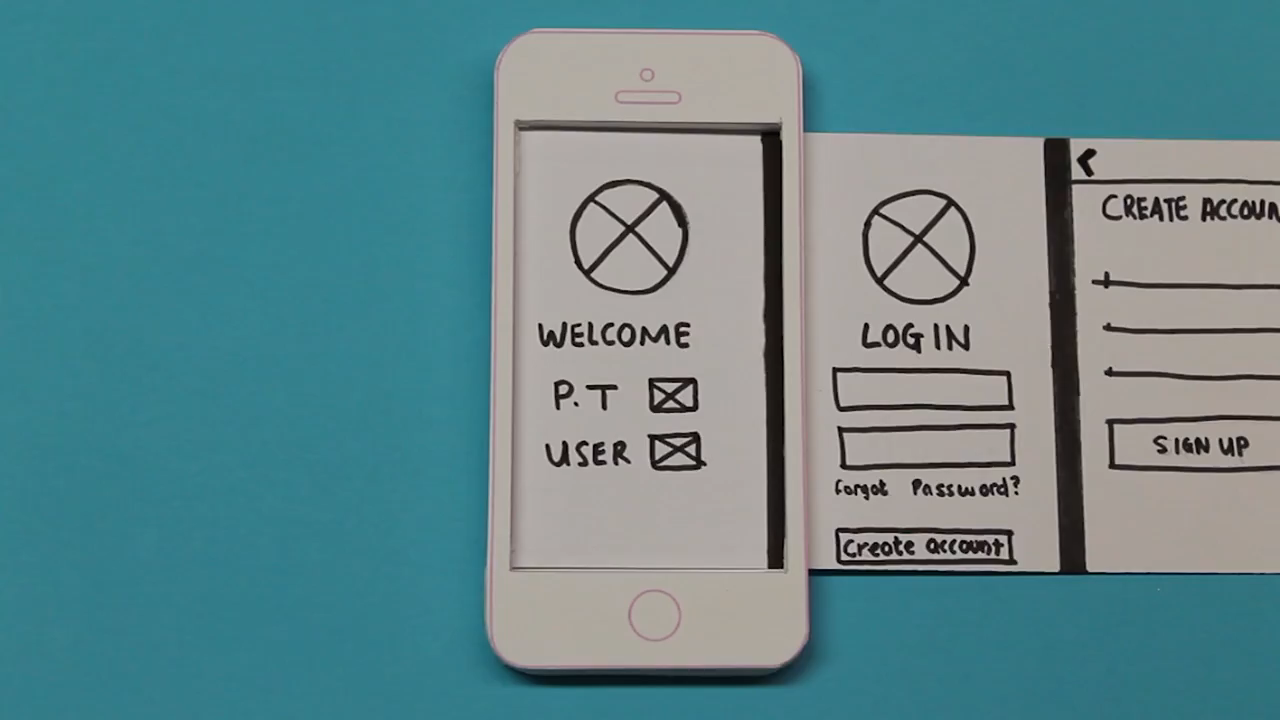 WELCOME
P.T
USER
LOGIN
Forgot Password?
Create account
CREATE ACCOUN
SIGN UP